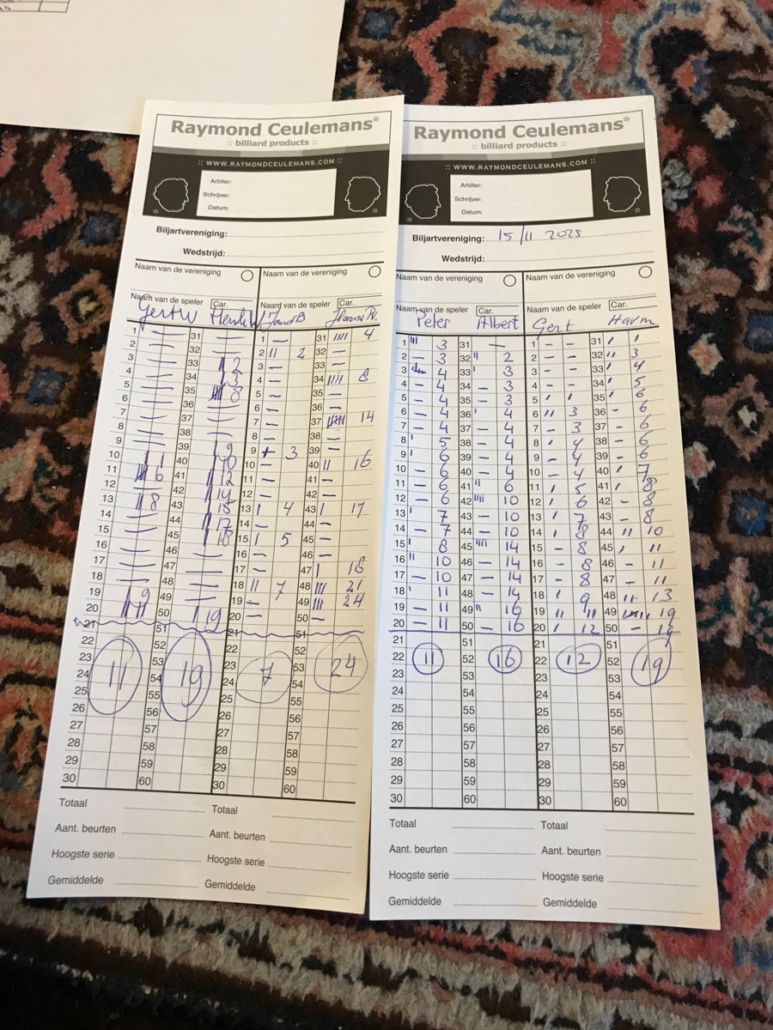 Raymond Ceulemans®
:: billiard products ::
:: WWW.RAYMONDCEULEMANS.COM ::
Arbiter:
Schrijver:
Datum:
Biljartvereniging:
Wedstrijd:
Naam van de vereniging Naam van de vereniging
Naam van de speler Car. Naam van de speler Car.
GertW HenkW JanB
1 31 1 31 4
2 32 2 2 32
3 33 2 3 33
4 34 3 4 34 8
5 35 8 5 35
6 36 6 36
7 37 7 37 14
8 38 8 38
9 39 9 9 3 39
10 1 40 10 10 40 16
11 6 41 12 11 41
12 42 14 12 42
13 8 43 15 13 4 43 17
14 44 17 14 44
15 45 18 15 5 45
16 46 16 46
17 47 17 47 18
18 48 18 7 48 21
19 9 49 19 49 24
20 11 50 19 20 50
21 51 21 51
22 52 22 52
23 53 23 53
24 54 24 54
11 19 7 24
25 55 25 55
26 56 26 56
27 57 27 57
28 58 28 58
29 59 29 59
30 60 30 60
Totaal Totaal
Aant. beurten Aant. beurten
Hoogste serie Hoogste serie
Gemiddelde Gemiddelde
Raymond Ceulemans®
:: billiard products ::
:: WWW.RAYMONDCEULEMANS.COM ::
Arbiter:
Schrijver:
Datum:
Biljartvereniging: 15/11 2025
Wedstrijd:
Naam van de vereniging Naam van de vereniging
Naam van de speler Car. Naam van de speler Car.
Peter Albert Gert Harm
1 3 31 - 1 - - 31 1
2 - 3 32 2 2 - - 32 3
3 4 33 3 3 - - 33 4
4 - 4 34 - 3 4 - - 34 5
5 - 4 35 - 3 5 35 6
6 - 4 36 4 6 3 36 - 6
7 - 4 37 - 4 7 - 3 37 - 6
8 5 38 - 4 8 4 38 - 6
9 6 39 - 4 9 - 4 39 - 6
10 - 6 40 - 4 10 - 4 40 7
11 - 6 41 6 11 5 41 8
12 - 6 42 10 12 6 42 - 8
13 7 43 - 10 13 7 43 - 8
14 - 7 44 - 10 14 8 44 10
15 8 45 14 15 - 8 45 11
16 10 46 - 14 16 - 8 46 - 11
17 - 10 47 - 14 17 - 8 47 - 11
18 11 48 - 14 18 9 48 13
19 - 11 49 16 19 11 49 19
20 - 11 50 - 16 20 12 50 - 19
21 51 21 51
22 11 52 16 22 12 52 19
23 53 23 53
24 54 24 54
25 55 25 55
26 56 26 56
27 57 27 57
28 58 28 58
29 59 29 59
30 60 30 60
Totaal Totaal
Aant. beurten Aant. beurten
Hoogste serie Hoogste serie
Gemiddelde Gemiddelde